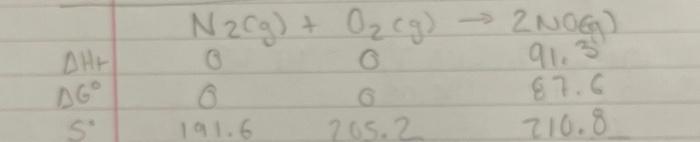 N2(g) + O2(g) → 2NO(g)
ΔHf 0 0 91.3
ΔG° 0 0 87.6
S° 191.6 205.2 210.8